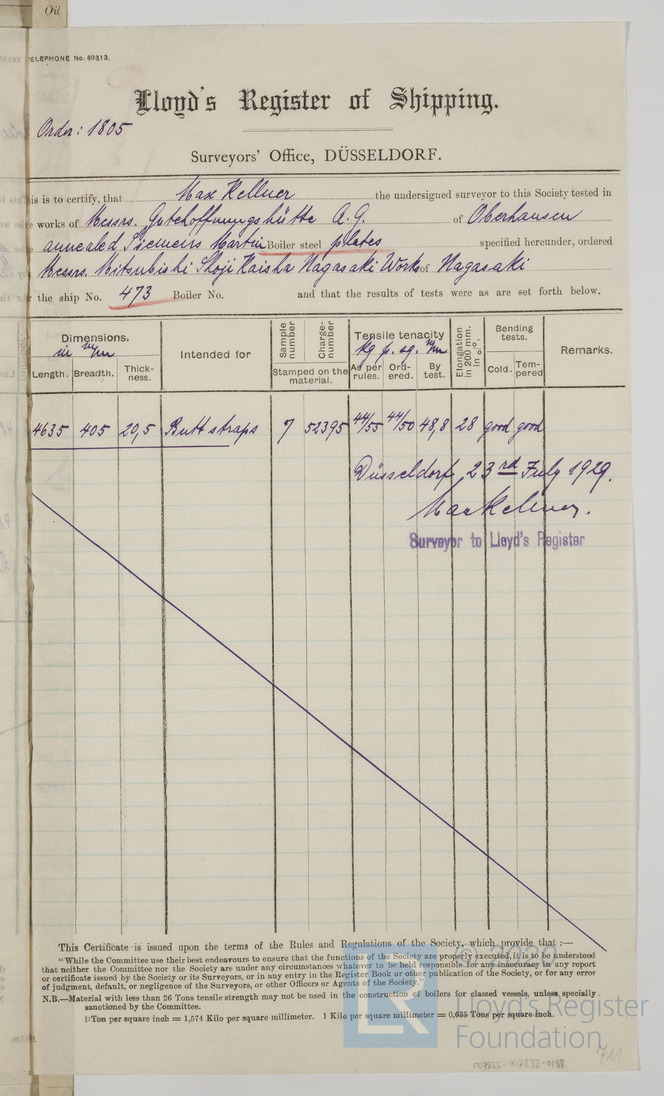 Oil
TELEPHONE No. 60313.
Lloyd's Register of Shipping.
Order: 1805
Surveyors' Office, DÜSSELDORF.
is is to certify, that Max Kellner the undersigned surveyor to this Society tested in
works of Messrs. Gutehoffnungshütte A.G. of Oberhausen
annealed Siemens Martin Boiler steel plates specified hereunder, ordered
Messrs. Mitsubishi Shoji Kaisha Nagasaki Works of Nagasaki
r the ship No. 473 Boiler No. and that the results of tests were as are set forth below.
Dimensions. in m/m
Length. Breadth. Thick-ness.
Intended for
Sample number Charge-number
Stamped on the material.
Tensile tenacity
Kg p. sq. m/m
As per rules. Ord-ered. By test.
Elongation in 200 mm. in %.
Bending tests.
Cold. Tem-pered
Remarks.
4635 405 20,5 Butt straps 7 52395 44/55 44/50 48,8 28 good good
Düsseldorf, 23rd July 1929.
Max Kellner.
Surveyor to Lloyd's Register
This Certificate is issued upon the terms of the Rules and Regulations of the Society, which provide that :—
"While the Committee use their best endeavours to ensure that the functions of the Society are properly executed, it is to be understood
that neither the Committee nor the Society are under any circumstances whatever to be held responsible for any inaccuracy in any report
or certificate issued by the Society or its Surveyors, or in any entry in the Register Book or other publication of the Society, or for any error
of judgment, default, or negligence of the Surveyors, or other Officers or Agents of the Society."
N.B.—Material with less than 26 Tons tensile strength may not be used in the construction of boilers for classed vessels, unless specially
sanctioned by the Committee.
1 Ton per square inch = 1,574 Kilo per square millimeter. 1 Kilo per square millimeter = 0,635 Tons per square inch.
LR
© 2020
Lloyd's Register
Foundation
007835-007833-0188